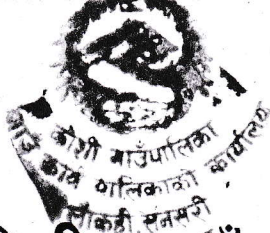 कोशी गाउँपालिका
गाउँ कार्यपालिकाको कार्यालय
लौकही, सुनसरी